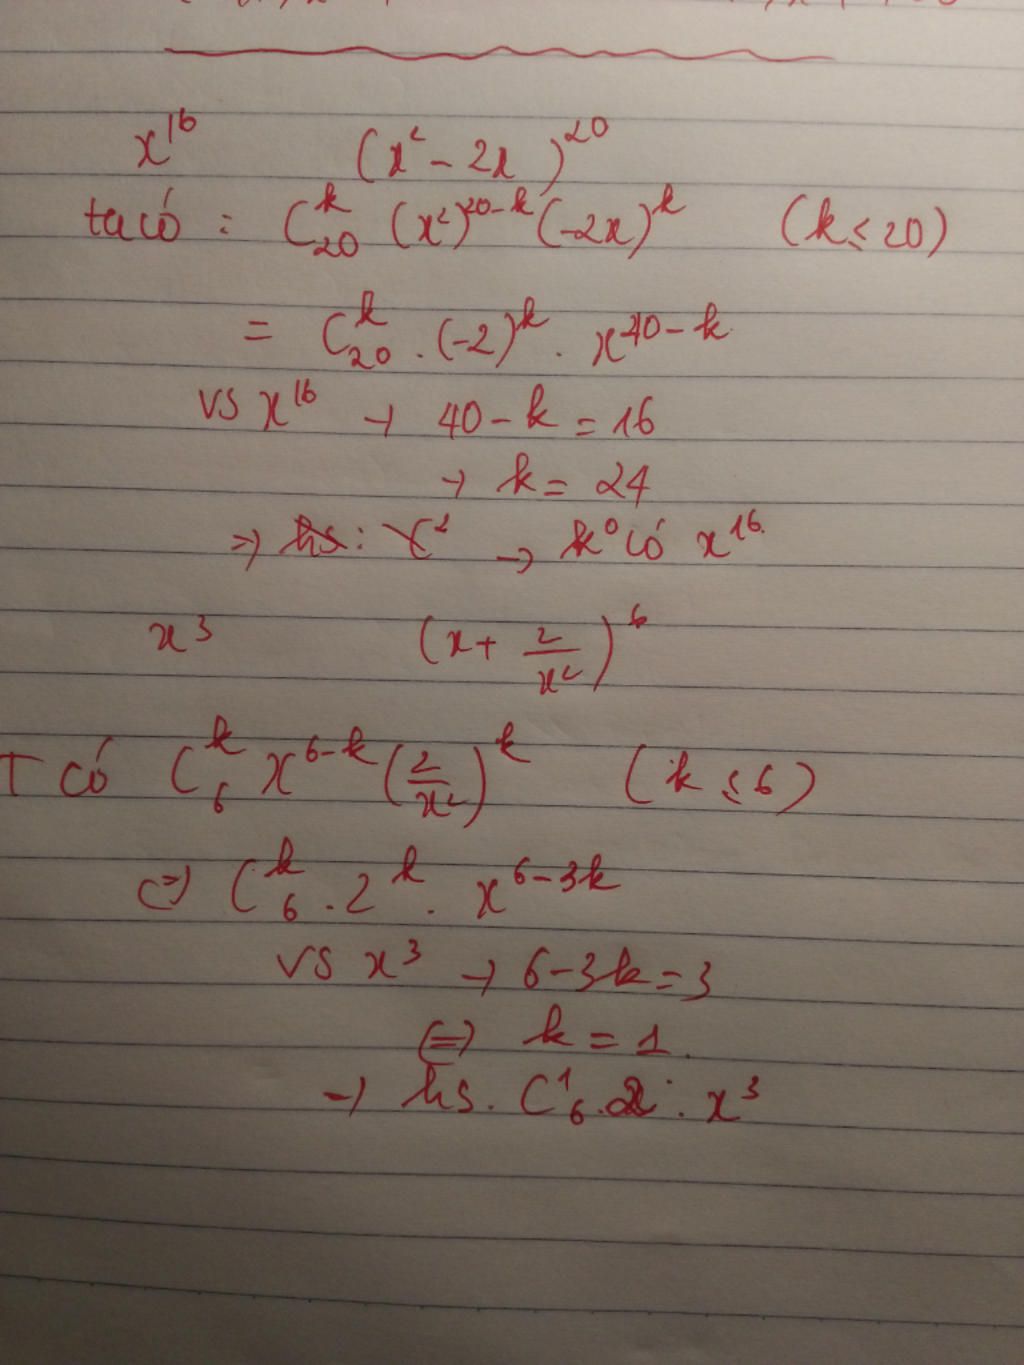 x^16 (x² - 2x)^20
ta có : C_20^k (x²)^20-k (-2x)^k (k ≤ 20)
= C_20^k . (-2)^k . x^40-k
vs x^16 → 40 - k = 16
→ k = 24
⇒ hs: → k° có x^16.
x³ (x + 2/x²)^6
T có C_6^k x^6-k (2/x²)^k (k ≤ 6)
⇔ C_6^k . 2^k . x^6-3k
vs x³ → 6 - 3k = 3
⇔ k = 1.
→ hs. C_6^1 . 2 . x³